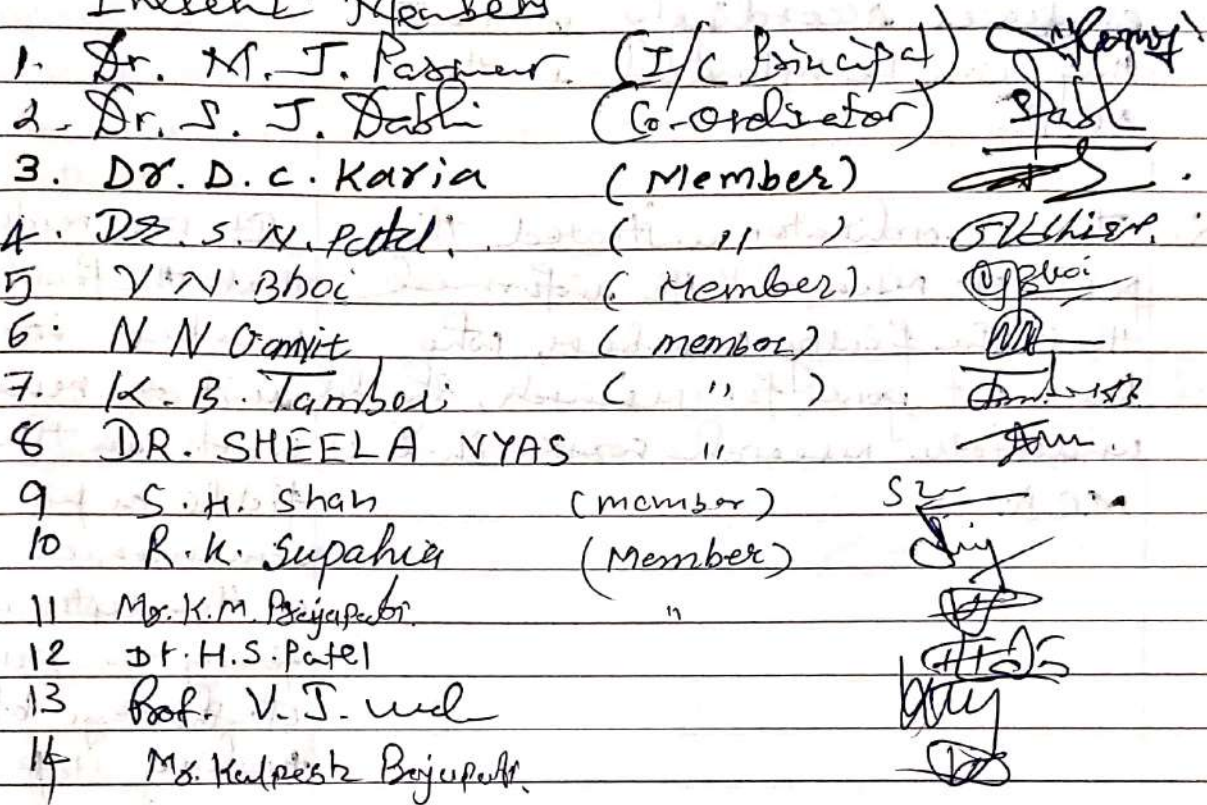 Present Members
1. Dr. M. J. Parmar (I/C Principal)
2. Dr. S. J. Dabhi (Co-ordinator)
3. Dr. D. C. Karia (Member)
4. Dr. S. N. Patel. ( " )
5 V. N. Bhoi (Member)
6. N N Gamit (member)
7. K. B. Tamboli ( " )
8 DR. SHEELA VYAS "
9 S. H. Shah (member)
10 R. K. Supahia (Member)
11 Mr. K. M. Prajapati. "
12 Dr. H. S. Patel
13 Prof. V. J.
14 Mr. Kalpesh Prajapati.